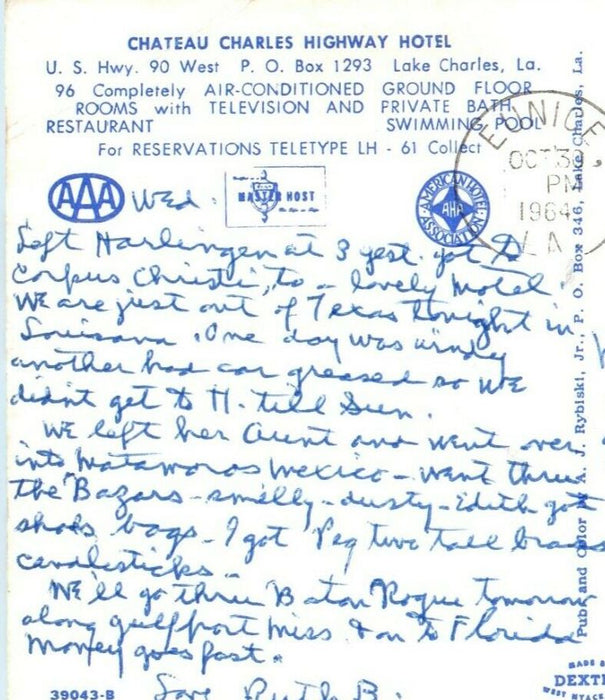 CHATEAU CHARLES HIGHWAY HOTEL
U. S. Hwy. 90 West P. O. Box 1293 Lake Charles, La.
96 Completely AIR-CONDITIONED GROUND FLOOR
ROOMS with TELEVISION AND PRIVATE BATH
RESTAURANT SWIMMING POOL
For RESERVATIONS TELETYPE LH - 61 Collect
EUNICE,
OCT 30
PM
1964
LA
AAA
MASTER HOST
AMERICAN HOTEL ASSOCIATION
AHA
Wed.
Left Harlingen at 3 yest. got to
Corpus Christi, to a lovely motel.
We are just out of Texas tonight in
Louisana. One day was windy
another had car greased so we
didnt get to H. till Sun.
We left her Aunt and went over
into Matamoros Mexico - went thru
the Bazars - smelly - dusty - Edith got
bags - I got Peg two tall brass
candlesticks -
We'll go thru Baton Rogue tomorrow
along gulfport Miss & on to Florida
Money goes fast.
Love Ruth B.
39043-B
Pub. and Color by A. J. Rybiski, Jr., P. O. Box 346, Lake Charles, La.
MADE B
DEXTE
WEST NYACK